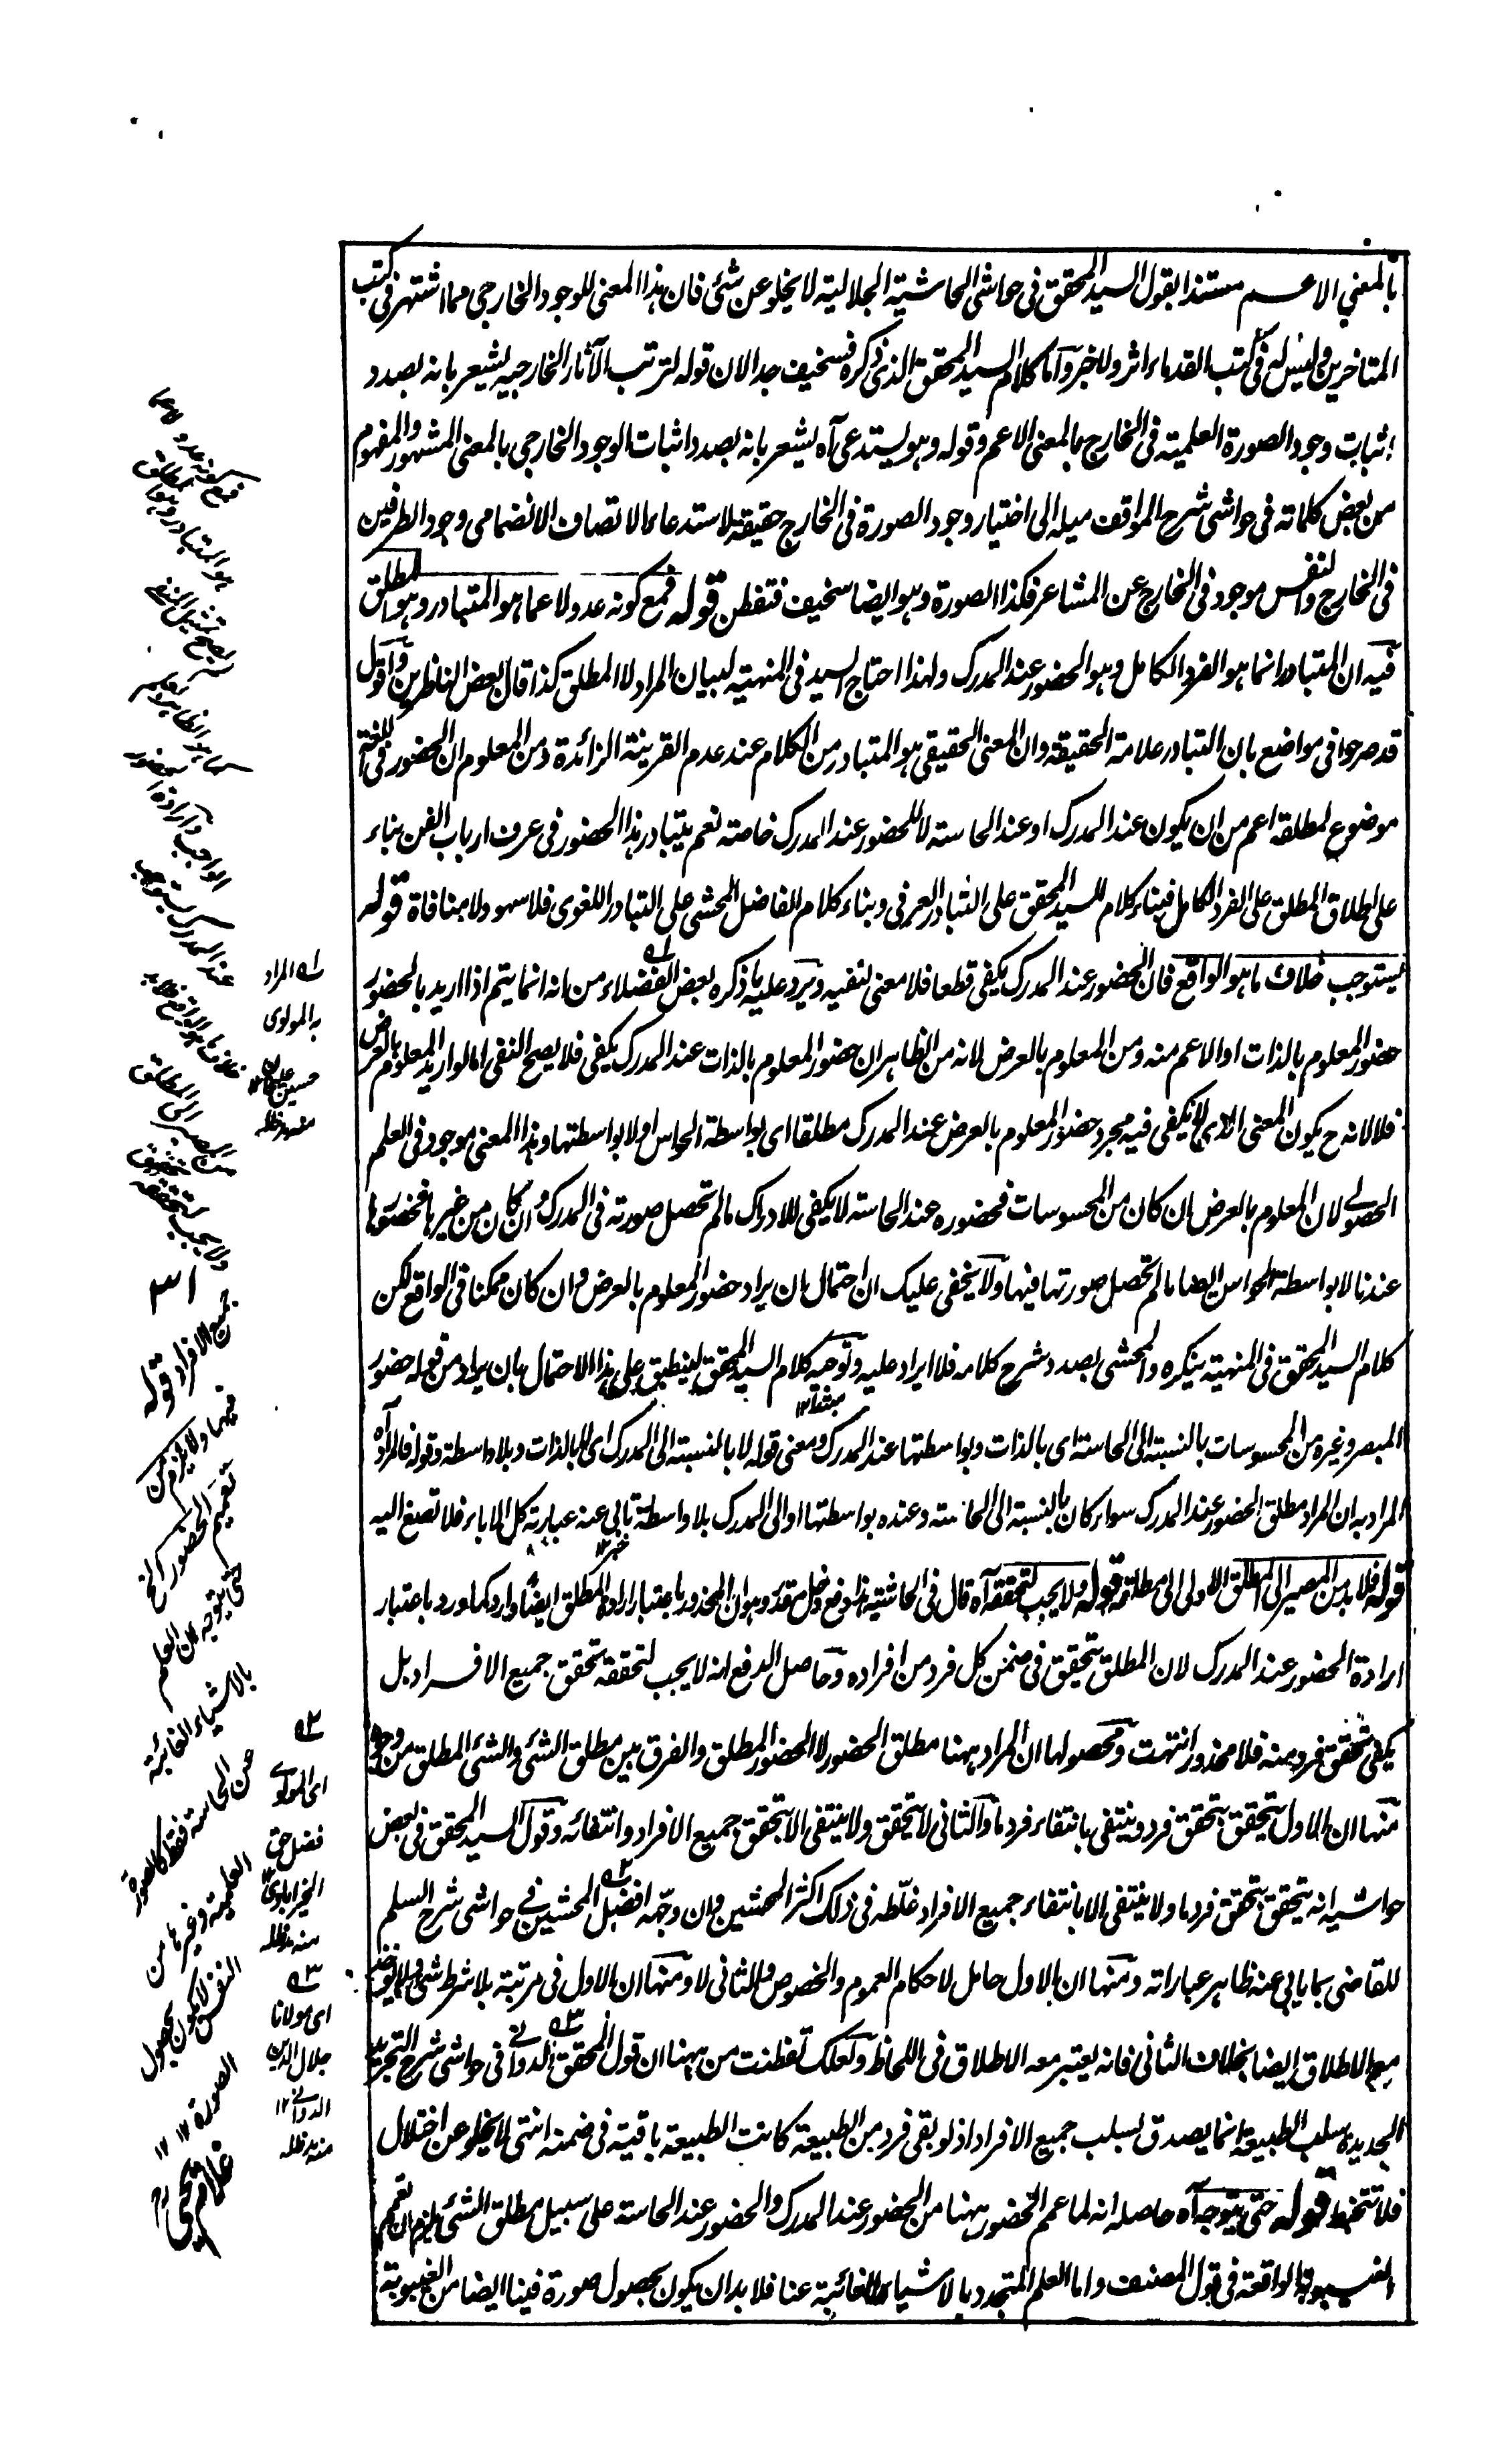 بالمعنى الاعم مستندا بقول السيد المحقق فى حواشى الحاشية الجلالية لا يخلو عن شئ فان هذا المعنى للوجود الخارجى مما اشتهر فى كتب
المتاخرين وليس له فى كتب القدماء اثر ولا خبر واما كلام السيد المحقق الذى ذكره فسخيف جدا لان قوله لترتب الآثار الخارجيه يشعر بانه بصدد
اثبات وجود الصورة العلمية فى الخارج بالمعنى الاعم وقوله وهو يستدعى آه يشعر بانه بصدد اثبات الوجود الخارجى بالمعنى المشهور والمفهوم
من بعض كلماته فى حواشى شرح المواقف ميله الى اختيار وجود الصورة فى الخارج حقيقة لاستدعاء الاتصاف الانضمامى وجود الطرفين
فى الخارج والنفس موجود فى الخارج عن المشاعر فكذا الصورة وهو ايضا سخيف فتفطن قوله فمع كونه عدولا عما هو المتبادر وهو المطلق
فيه ان المتبادر انما هو الفرد الكامل وهو الحضور عند المدرك ولهذا احتاج السيد فى المنهية لبيان المراد لا المطلق كذا قال بعض الناظرين واقول
قد صرحوا فى مواضع بان التبادر علامة الحقيقة وان المعنى الحقيقى هو المتبادر من الكلام عند عدم القرينة الزائدة ومن المعلوم ان الحضور فى اللغة
موضوع لمطلقه اعم من ان يكون عند المدرك او عند الحاسة لا للحضور عند المدرك خاصة نعم يتبادر هذا الحضور فى عرف ارباب الفن بناء
على اطلاق المطلق على الفرد الكامل فبناء كلام السيد المحقق على التبادر العرفى وبناء كلام الفاضل المحشى على التبادر اللغوى فلا سهو ولا منافاة قوله
يستوجب خلاف ما هو الواقع فان الحضور عند المدرك يكفى قطعا فلا معنى لنفيه ويرد عليه ما ذكره بعض الفضلاء من انه انما يتم اذا اريد بالحضور
حضور المعلوم بالذات او الاعم منه ومن المعلوم بالعرض لانه من الظاهر ان حضور المعلوم بالذات عند المدرك يكفى فلا يصح النفى اما لو اريد المعلوم بالعرض
فلا لانه ح يكون المعنى الذى لا يكفى فيه مجرد حضور المعلوم بالعرض عند المدرك مطلقا اى بواسطة الحواس او لا بواسطتها وهذا المعنى موجود فى العلم
الحصولى لان المعلوم بالعرض ان كان من المحسوسات فحضوره عند الحاسة لا يكفى للادراك ما لم تحصل صورته فى المدرك وان كان من غيرها فحضورها
عندنا لا بواسطة الحواس ايضا ما لم تحصل صورتها فيها ولا يخفى عليك ان احتمال ان يراد حضور المعلوم بالعرض وان كان ممكنا فى الواقع لكن
كلام السيد المحقق فى المنهية ينكره والمحشى بصدد شرح كلامه فلا ايراد عليه وتوجيه كلام السيد المحقق لينطبق على هذا الاحتمال بان يراد من قوله حضور
المبصر وغيره من المحسوسات بالنسبة الى الحاسة اى بالذات وبواسطتها عند المدرك ومعنى قوله لا بالنسبة الى المدرك اى لا بالذات وبلا واسطة وقوله فالمراد آه
المراد به ان المراد مطلق الحضور عند المدرك سواء كان بالنسبة الى الحاسة وعنده بواسطتها او الى المدرك بلا واسطة تابى عنه عبارته كل الاباء فلا تصغ اليه
قوله فلا بد من المصير الى المطلق الاولى الى مطلقه قوله ولا يجب لتحققه آه قال فى الحاشية هذا دفع دخل مقدر وهو ان المحذور باعتبار ارادة المطلق ايضا وارد كما ورد باعتبار
ارادة الحضور عند المدرك لان المطلق يتحقق فى ضمن كل فرد من افراده وحاصل الدفع انه لا يجب لتحققه تحقق جميع الافراد بل
يكفى تحقق فرد منه فلا محذور انتهت ومحصولها ان المراد ههنا مطلق الحضور لا الحضور المطلق والفرق بين مطلق الشئ والشئ المطلق من وجوه
منها ان الاول يتحقق بتحقق فرد وينتفى بانتفاء فرد ما والثانى لا يتحقق ولا ينتفى الا بتحقق جميع الافراد وانتفائه وقول السيد المحقق فى بعض
حواشيه انه يتحقق بتحقق فرد ما ولا ينتفى الا بانتفاء جميع الافراد غلّطه فى ذلك اكثر المحشين وان وجّهه افضل المحشين فى حواشى شرح السلم
للقاضى بما يابى عنه ظاهر عباراته ومنها ان الاول حامل لاحكام العموم والخصوص والثانى لا ومنها ان الاول فى مرتبة بلا شرط شئ
مع الاطلاق ايضا بخلاف الثانى فانه يعتبر معه الاطلاق فى اللحاظ ولعلك تفطنت من ههنا ان قول المحقق الدوانى فى حواشى شرح التجريد
الجديدة سلب الطبيعة انما يصدق بسلب جميع الافراد اذ لو بقى فرد من الطبيعة كانت الطبيعة باقية فى ضمنه انتهى لا يخلو عن اختلال
فلا تتخبط قوله حتى يتوجه آه حاصله انه لما عمم الحضور ههنا من الحضور عند المدرك والحضور عند الحاسة على سبيل مطلق الشئ يلزم ان تعمم
الغيبوبة الواقعة فى قول المصنف واما العلم المتجدد بالاشياء الغائبة عنا فلا بد ان يكون بحصول صورة فينا ايضا من الغيبوبة
فمع كونه عدولا عما
هو المتبادر وهو المطلق
كما هو الظاهر
الواجب وارادة الحضور
عند المدرك يستوجب
خلاف ما هو الواقع فلا بد
من المصير الى المطلق
ولا يجب لتحققه تحقق
جميع الافراد قوله
فيهما ولا يلزم من
تعميم الحضور الخ
حتى يتوجه ان العلم
بالاشياء الغائبة
عن الحاسة فقط كالصورة
العلمية وغيرها من
النفس لا يكون بحصول
الصورة ١٢
ا٥ المراد
به المولوى
منه مدظله
٥٢
اى المولوى
فضل حق
الخيرابادى
منه مدظله
٥٣
اى مولانا
جلال الدين
الدوانى ١٢
منه مدظله